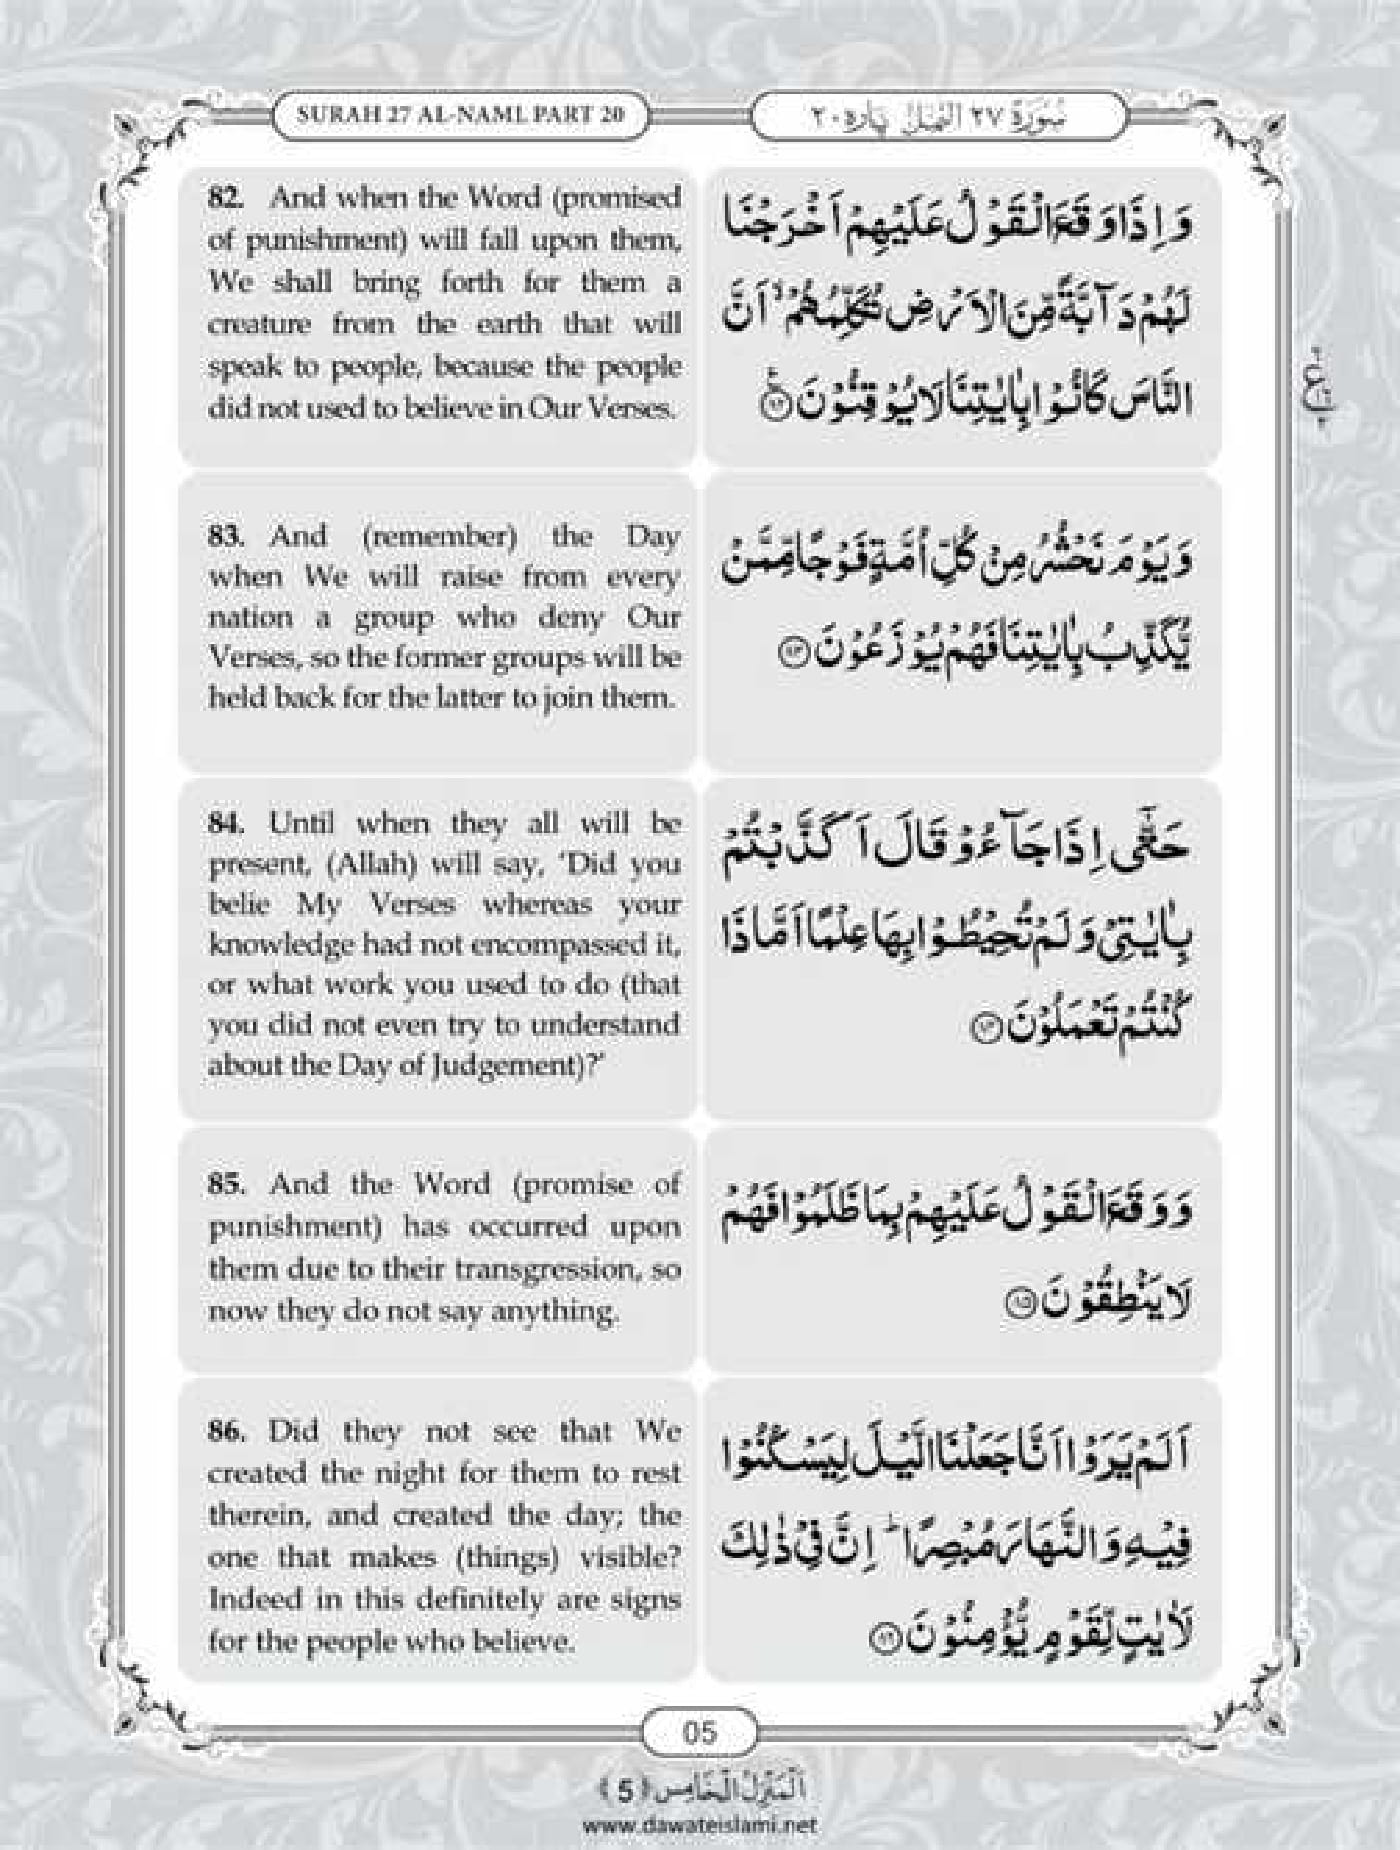 SURAH 27 AL-NAML PART 20
سُوْرَةُ ٢٧ النَّمْل پارہ ٢٠
82. And when the Word (promised
of punishment) will fall upon them,
We shall bring forth for them a
creature from the earth that will
speak to people, because the people
did not used to believe in Our Verses.
وَ اِذَا وَقَعَ الْقَوْلُ عَلَیْهِمْ اَخْرَجْنَا
لَهُمْ دَآبَّةً مِّنَ الْاَرْضِ تُكَلِّمُهُمْۙ اَنَّ
النَّاسَ كَانُوْا بِاٰیٰتِنَا لَا یُوْقِنُوْنَ ﴿۸۲﴾
ع
83. And (remember) the Day
when We will raise from every
nation a group who deny Our
Verses, so the former groups will be
held back for the latter to join them.
وَ یَوْمَ نَحْشُرُ مِنْ كُلِّ اُمَّةٍ فَوْجًا مِّمَّنْ
یُّكَذِّبُ بِاٰیٰتِنَا فَهُمْ یُوْزَعُوْنَ ﴿۸۳﴾
84. Until when they all will be
present, (Allah) will say, 'Did you
belie My Verses whereas your
knowledge had not encompassed it,
or what work you used to do (that
you did not even try to understand
about the Day of Judgement)?'
حَتّٰۤى اِذَا جَآءُوْ قَالَ اَكَذَّبْتُمْ
بِاٰیٰتِیْ وَ لَمْ تُحِیْطُوْا بِهَا عِلْمًا اَمَّا ذَا
كُنْتُمْ تَعْمَلُوْنَ ﴿۸۴﴾
85. And the Word (promise of
punishment) has occurred upon
them due to their transgression, so
now they do not say anything.
وَ وَقَعَ الْقَوْلُ عَلَیْهِمْ بِمَا ظَلَمُوْا فَهُمْ
لَا یَنْطِقُوْنَ ﴿۸۵﴾
86. Did they not see that We
created the night for them to rest
therein, and created the day; the
one that makes (things) visible?
Indeed in this definitely are signs
for the people who believe.
اَلَمْ یَرَوْا اَنَّا جَعَلْنَا الَّیْلَ لِیَسْكُنُوْا
فِیْهِ وَ النَّهَارَ مُبْصِرًاؕ اِنَّ فِیْ ذٰلِكَ
لَاٰیٰتٍ لِّقَوْمٍ یُّؤْمِنُوْنَ ﴿۸۶﴾
05
اَلْمَنْزِلُ الْخَامِس ﴿5﴾
www.dawateislami.net